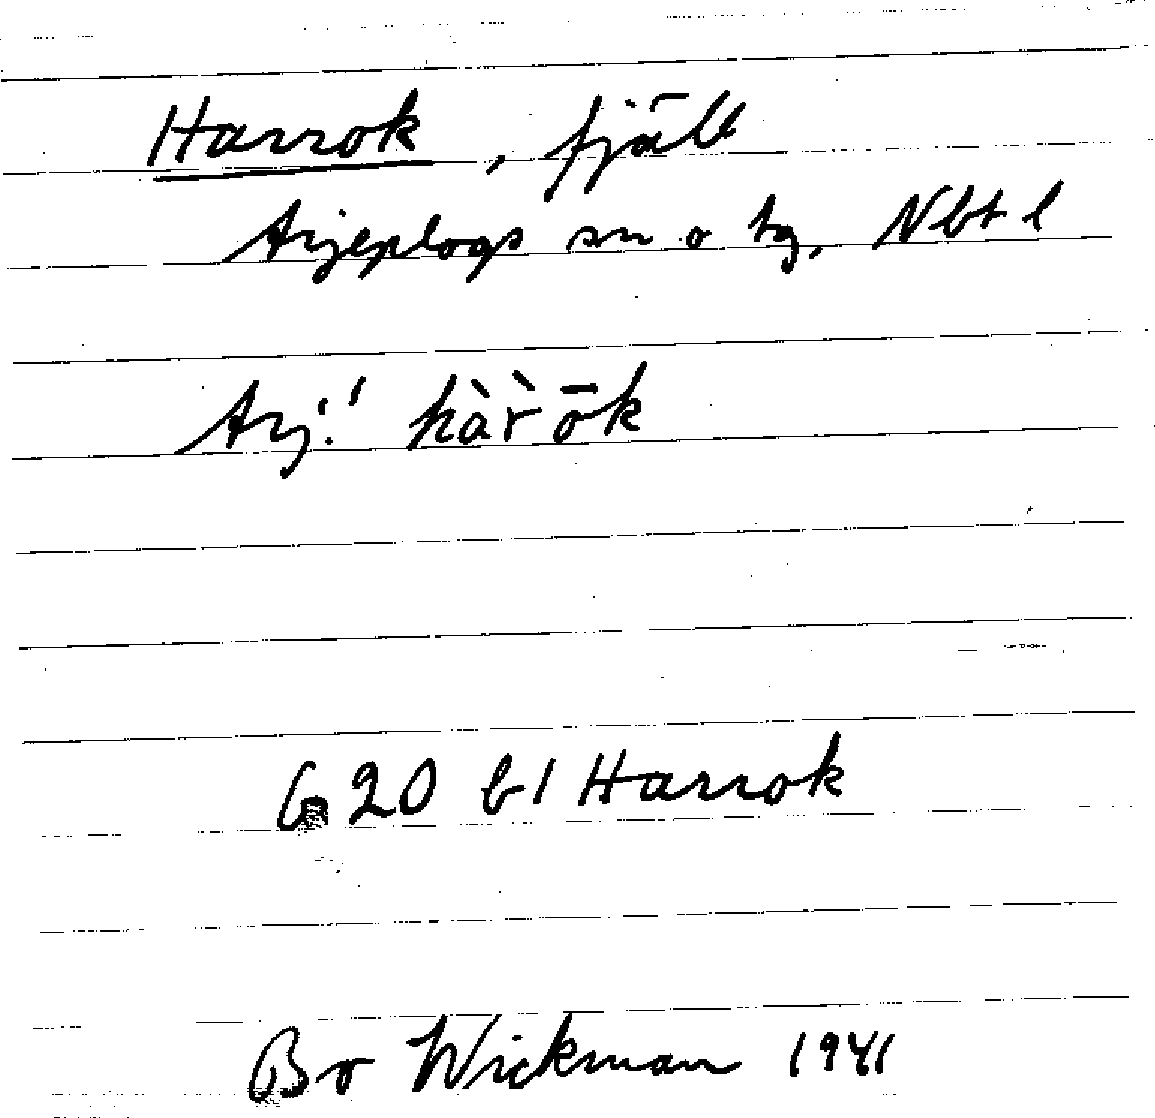 Harrok, fjäll
Arjeplogs sn o tg, Nbt l
Arj:' hàr̀ōk
G 20 bl Harrok
Bo Wickman 1941